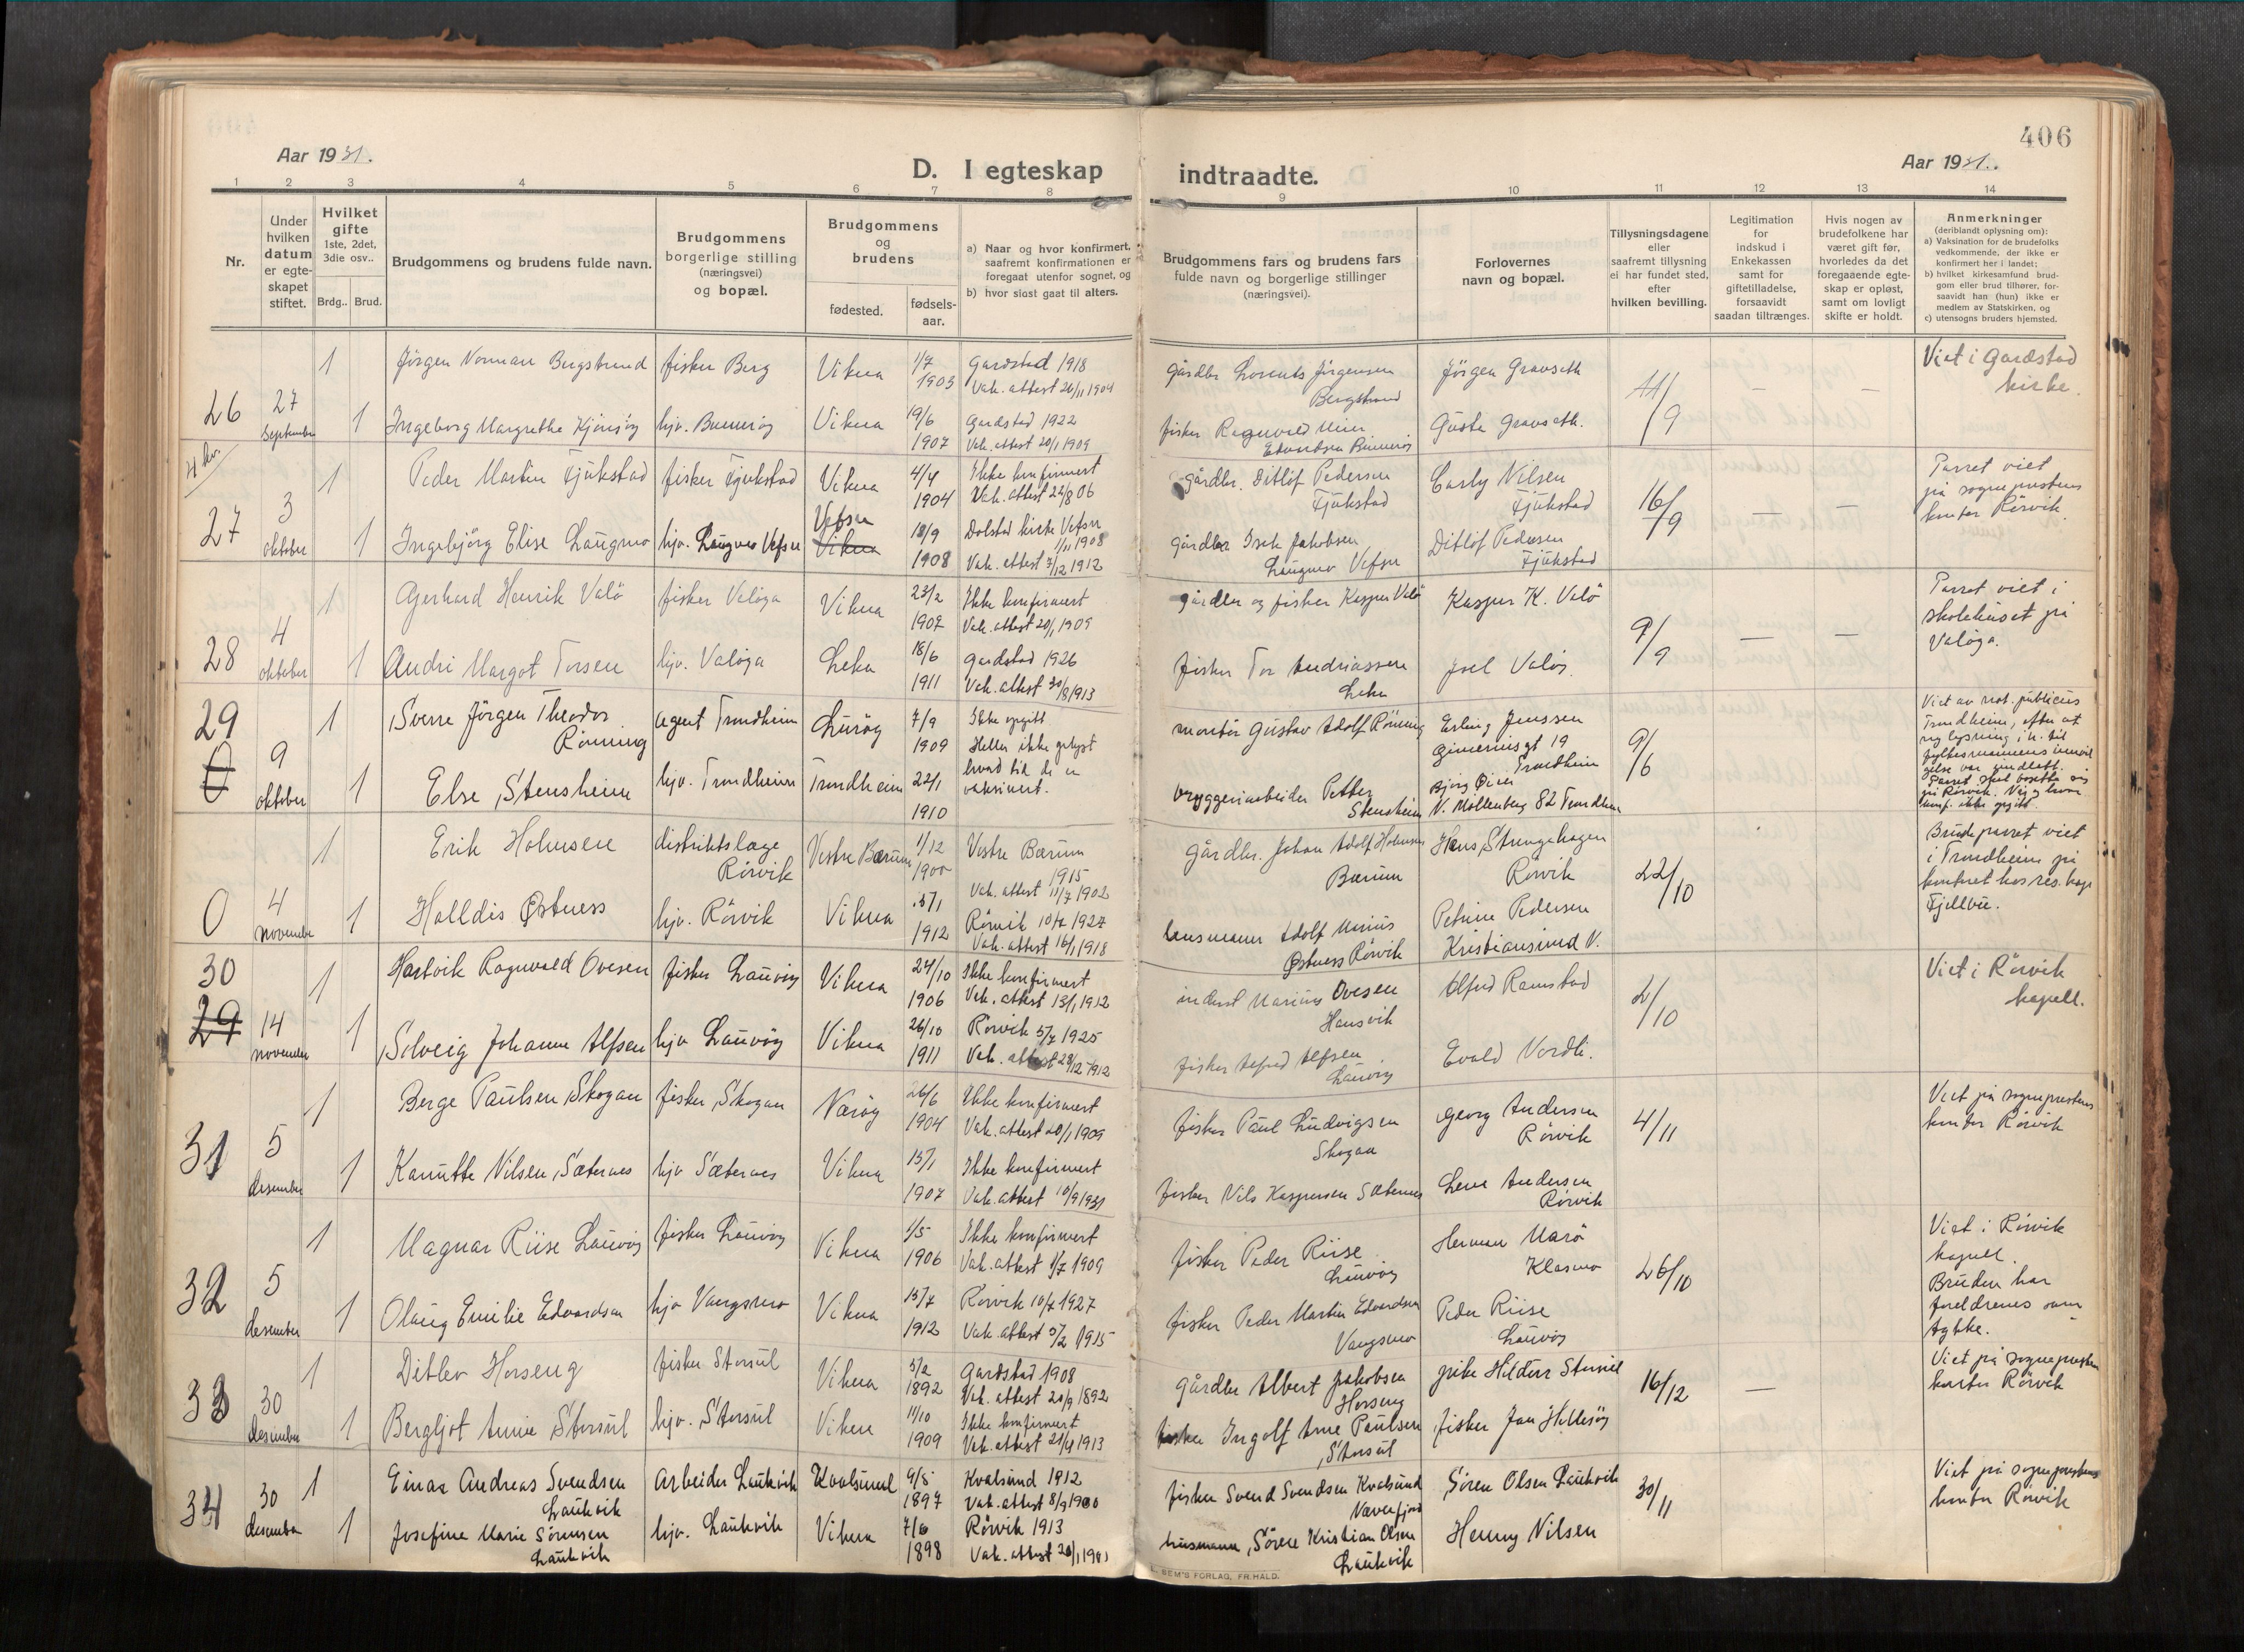 406
Aar 1931.
Aar 1931.
D. I egteskap indtraadte.
1 2 3 4 5 6 7 8 9 10 11 12 13 14
Nr.
Under hvilken datum er egteskapet stiftet.
Hvilket gifte
1ste, 2det, 3die osv..
Brdg.. Brud.
Brudgommens og brudens fulde navn.
Brudgommens borgerlige stilling (næringsvei) og bopæl.
Brudgommens og brudens
fødested.
fødsels-aar.
a) Naar og hvor konfirmert, saafremt konfirmationen er foregaat utenfor sognet, og
b) hvor sidst gaat til alters.
Brudgommens fars og brudens fars fulde navn og borgerlige stillinger (næringsvei).
Forlovernes navn og bopæl.
Tillysningsdagene eller saafremt tillysning ei har fundet sted, efter hvilken bevilling.
Legitimation for indskud i Enkekassen samt for giftetilladelse, forsaavidt saadan tiltrænges.
Hvis nogen av brudefolkene har været gift før, hvorledes da det foregaaende egteskap er opløst, samt om lovligt skifte er holdt.
Anmerkninger
(deriblandt oplysning om):
a) Vaksination for de brudefolks vedkommende, der ikke er konfirmert her i landet;
b) hvilket kirkesamfund brudgom eller brud tilhører, forsaavidt han (hun) ikke er medlem av Statskirken, og
c) utensogns bruders hjemsted.
26 27 september
1 Jörgen Norman Bergstrand fisker Berg Vikna 1/7 1903 Gardstad 1918
Vak. attest 26/11 1904
gårdbr Lorents Jörgensen Bergstrand Jörgen Gravseth 11/9 Viet i Gardstad kirke
1 Ingeborg Margrethe Kjönsöy hjv. Binneröy Vikna 19/6 1907 Gardstad 1922
Vak. attest 20/1 1909
fisker Ragnvald Meier Edvardsen Binneröy Gusta Gravseth.
4 kv.
27 3 oktober
1 Peder Martin Fjukstad fisker Fjukstad Vikna 4/4 1904 Ikke konfirmert
Vak. attest 22/8 06
gårdbr. Ditlöf Pedersen Fjukstad Carly Nilsen Fjukstad 16/9 Parret viet på sogneprestens kontor Rörvik
1 Ingebjörg Elise Laugmo hjv. Laugmo Vefsn Vefsn Vikna 18/9 1908 Dolstad kirke Vefsn
Vak. attest 7/12 1912
gårdbr Isak Jakobsen Laugmo Vefsn Ditlöf Pedersen Fjukstad
28 4 oktober
1 Gerhard Henrik Valö fisker Valöya Vikna 23/2 1907 Ikke konfirmert
Vak. attest 20/1 1909
gårdbr og fisker Kasper Valö Kasper K. Valö 9/9 Parret viet i skolehuset på Valöya.
1 Andri Margot Torsen hjv. Valöya Leka 18/6 1911 Gardstad 1926
Vak. attest 30/8 1913
fisker Tor Andriassen Leka Joel Valöy.
29 9 oktober
1 Sverre Jörgen Theodor Rönning agent Trondheim Luröy 7/9 1909 Ikke opgitt
Heller ikke oplyst hvad tid de er vaksinert.
montör Gustav Adolf Rönning Erling Jenssen 19 Trondheim 9/6
Viet av not. publicus Trondheim
1 Else Stensheim hjv. Trondheim Trondheim 22/1 1910
bryggeriarbeider Petter Stensheim V. Möllenberg 82 Trondheim
0 4 november
1 Erik Holmsen distriktslæge Rörvik Vestre Bærum 1/12 1900 Vestre Bærum 1915
Vak. attest 11/7 1902
gårdbr. Johan Adolf Holmsen Bærum Hans Strugehagen Rörvik 22/10 Brudeparret viet i Trondheim på kontoret hos res. kap. Fjellbu.
1 Halldis Østness hjv. Rörvik Vikna 15/1 1912 Rörvik 10/7 1927
Vak. attest 16/1 1918
lensmann Adolf Marius Østness Rörvik Petrine Pedersen Kristiansund N.
30 29 14 november
1 Hartvik Ragnvald Ovesen fisker Lauvöy Vikna 24/10 1906 Ikke konfirmert
Vak. attest 13/1 1912
inderst Marius Ovesen Hansvik Alfred Ramstad 2/10 Viet i Rörvik kapell.
1 Solveig Johanne Alfsen hjv Lauvöy Vikna 26/10 1911 Rörvik 5/7 1925
Vak. attest 28/12 1912
fisker Alfred Alfsen Lauvöy Evald Nordli.
31 5 desember
1 Berge Paulsen Skogan fisker Skogan Næröy 26/6 1904 Ikke konfirmert
Vak. attest 20/1 1909
fisker Paul Ludvigsen Skogan Georg Andersen Rörvik 4/11 Viet på sogneprestens kontor Rörvik
1 Kanutte Nilsen Sæternes hjv Sæternes Vikna 15/1 1907 Ikke konfirmert
Vak. attest 10/9 1931
fisker Nils Kaspersen Sæternes Lene Andersen Rörvik
32 5 desember
1 Magnar Riise Lauvöy fisker Lauvöy Vikna 1/5 1906 Ikke konfirmert
Vak. attest 1/7 1909
fisker Peder Riise Lauvöy Herman Marö Klasmo 26/10 Viet i Rörvik kapell.
Bruden har foreldrenes samtykke.
1 Olaug Emilie Edvardsen hjv Vangsmo Vikna 15/7 1912 Rörvik 10/7 1927
Vak. attest 5/2 1915
fisker Peder Martin Edvardsen Vangsmo Peder Riise Lauvöy
33 30 desember
1 Ditlev Horseng fisker Storsul Vikna 5/2 1892 Gardstad 1908
Vak. attest 20/9 1892
gårdbr Albert Jakobsen Horseng 16/12 Viet på sogneprestens kontor Rörvik
1 Bergljot Annie Storsul hjv. Storsul Vikna 11/10 1909 Ikke konfirmert
Vak. attest 21/4 1913
fisker Ingolf Arne Paulsen Storsul fisker Jan Hellesöy
34 30 desember
1 Einar Andreas Svendsen Laukvik Arbeider Laukvik Kvalsund 9/5 1897 Kvalsund 1912
Vak. attest 8/9 1900
fisker Svend Svendsen Kvalsund Sören Olsen Laukvik 30/11 Viet på sogneprestens kontor Rörvik
1 Josefine Marie Sörensen Laukvik hjv. Laukvik Vikna 7/6 1898 Rörvik 1913
Vak. attest
husmann Sören Kristian Olsen Laukvik Henny Nilsen
SEM'S FORLAG, FR.HALD.